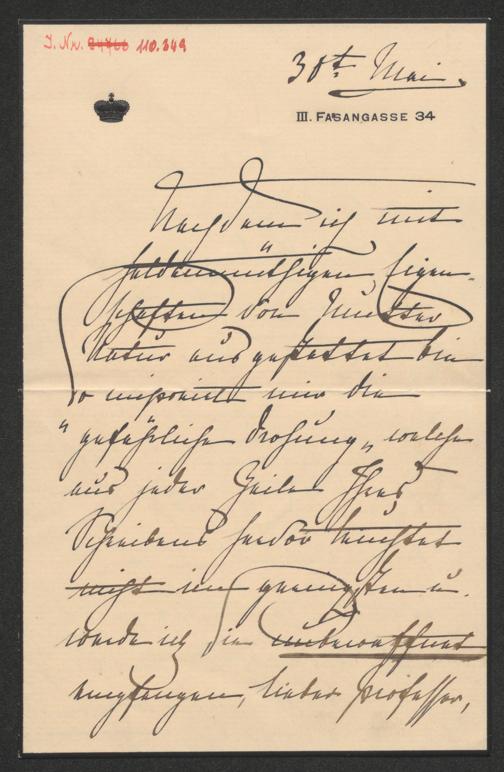 J. Nr. 24766 110.349
30t Mai.
III. FASANGASSE 34
Nachdem ich mit
heldenmüthigen Eigen-
schaften von Mutter
Natur ausgestattet bin
so imponirt mir die
"gefährliche Drohung" welche
aus jeder Zeile Ihres
Schreibens hervor leuchtet
nicht im geringsten u.
werde ich Sie unbewaffnet
empfangen, lieber Professor,